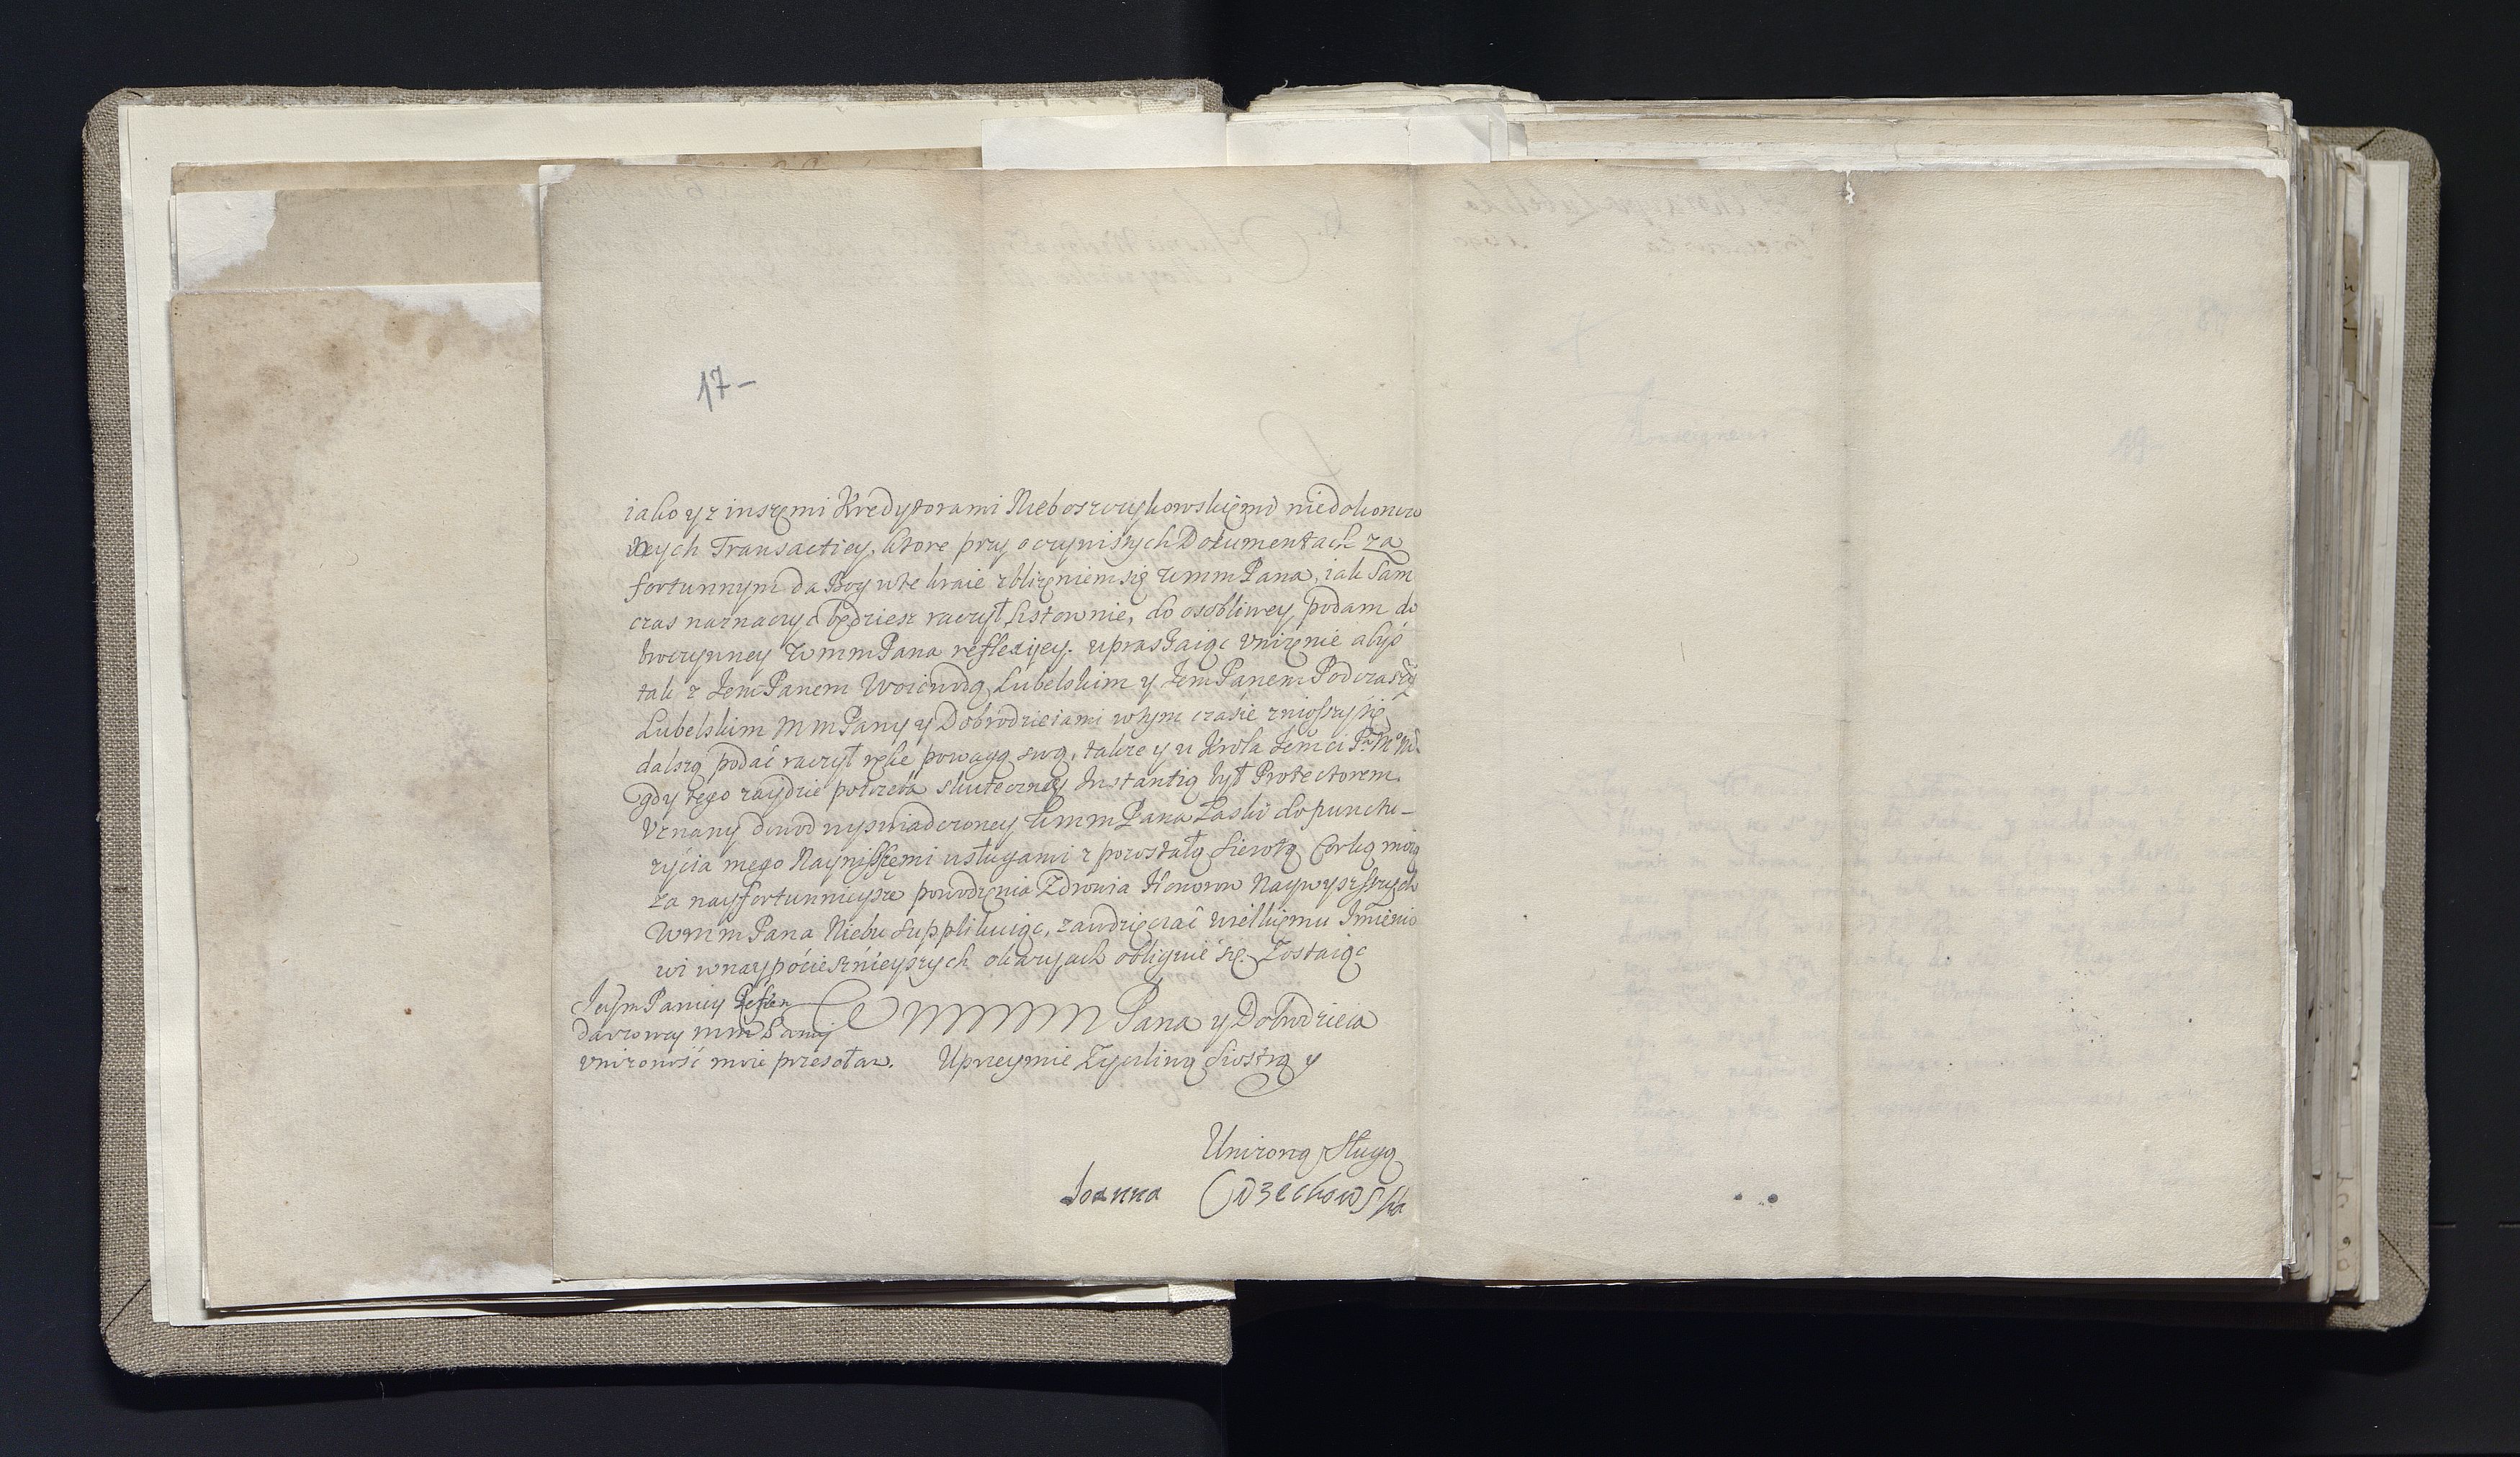 17-
iako y z inszemi Kredytorami Nieboszczykowskiemi niedokończo
nych Transactiey, ktore przy oczynistych Dokumentach za
fortunnym da Bog w te kraie zbliżeniem się WmmPana, iak sam
czas naznaczyć będziesz raczył listownie, do osobliwey podam do
broczynney WmmPana reflexiey. upraszaiąc uniżenie abyś
tak z JemPanem Woiewodą Lubelskim y JemPanem Podczaszy
Lubelskim MmPany y Dobrodzieiami w tym czasie zniosszy się
dalszą podać raczył rękę powagą swą, także y u Krola Jemci
gdy tego zaydzie potrzeba skuteczney Instantią był Protectorem.
Uznany dowod wyswiadczoney WmmPana Łaski do punctu-
życia mego Nayniższemi usługami z pozostałą Sierotą Corką moią
za nayfortunnieysze powodzenia Zdrowia Honorow Naywyższych
WmmPana Niebu supplikuiąc, zawdzięczać wielkiemu Imienio
wi w naypociesznieyszych okazyach obliguię się. Zostaiąc
JeymPaniey
darzowey mm Paniey
uniżoność moię przesełam.
Pana y Dobrodzieia
Uprzeymie Zyczliwą Siostrą y
Uniżoną Sługą
Joanna